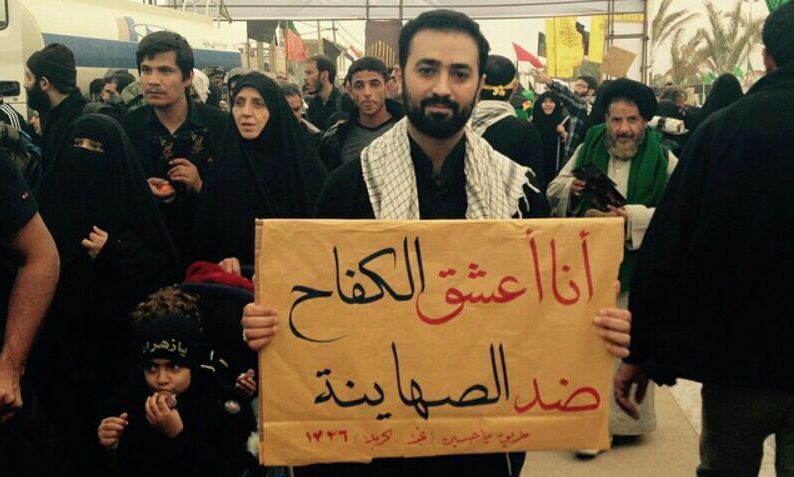 أنا أعشق الكفاح
ضد الصهاينة
طريق ياحسين (نجف . كربلا) ۱۴۳۶
يازهرا